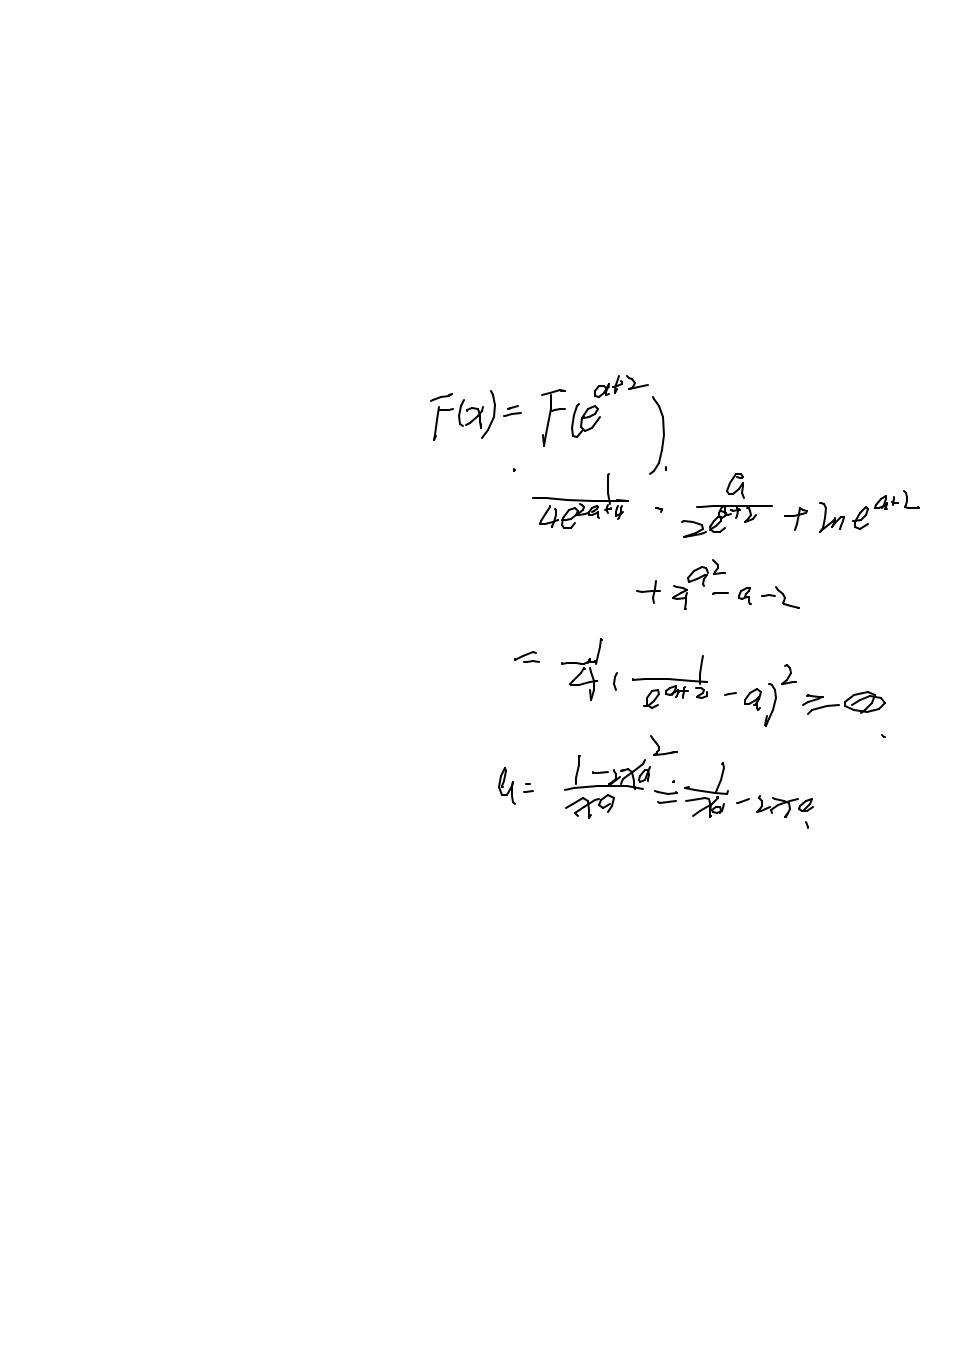 F(x) = F(e^{a+2}).
\frac{1}{4e^{2a+4}} - \frac{a}{2e^{a+2}} + ln e^{a+2}
+ \frac{a^2}{4} - a - 2
= \frac{1}{4} ( \frac{1}{e^{a+2}} - a )^2 ≥ 0.
u = \frac{1-2x_0^2}{x_0} = \frac{1}{x_0} - 2x_0.